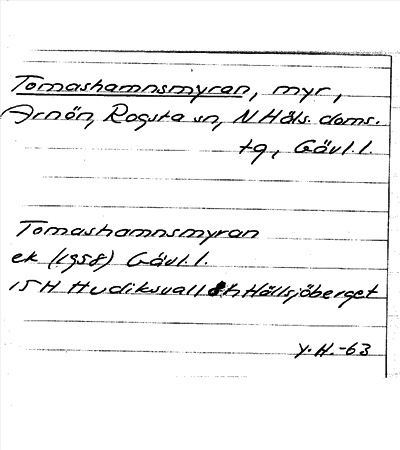 Tomashamnsmyran, myr,
Arnön, Rogsta sn, N Häls. doms.
tg, Gävl. l.
Tomashamnsmyran
ek (1958) Gävl. l.
15H Hudiksvall Hällsjöberget
Y. H. -63